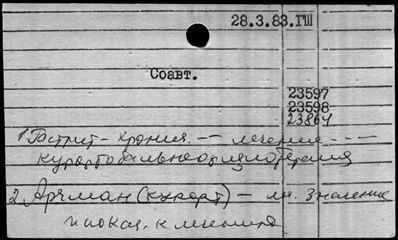 28.3.83.ГШ
Соавт.
23597
23598
23864
1. Гастрит - хронич. — лечение ---
курортобальнеофизиотерапия
2. Арчман (курорт) — ле. значение
и показ. к лечению